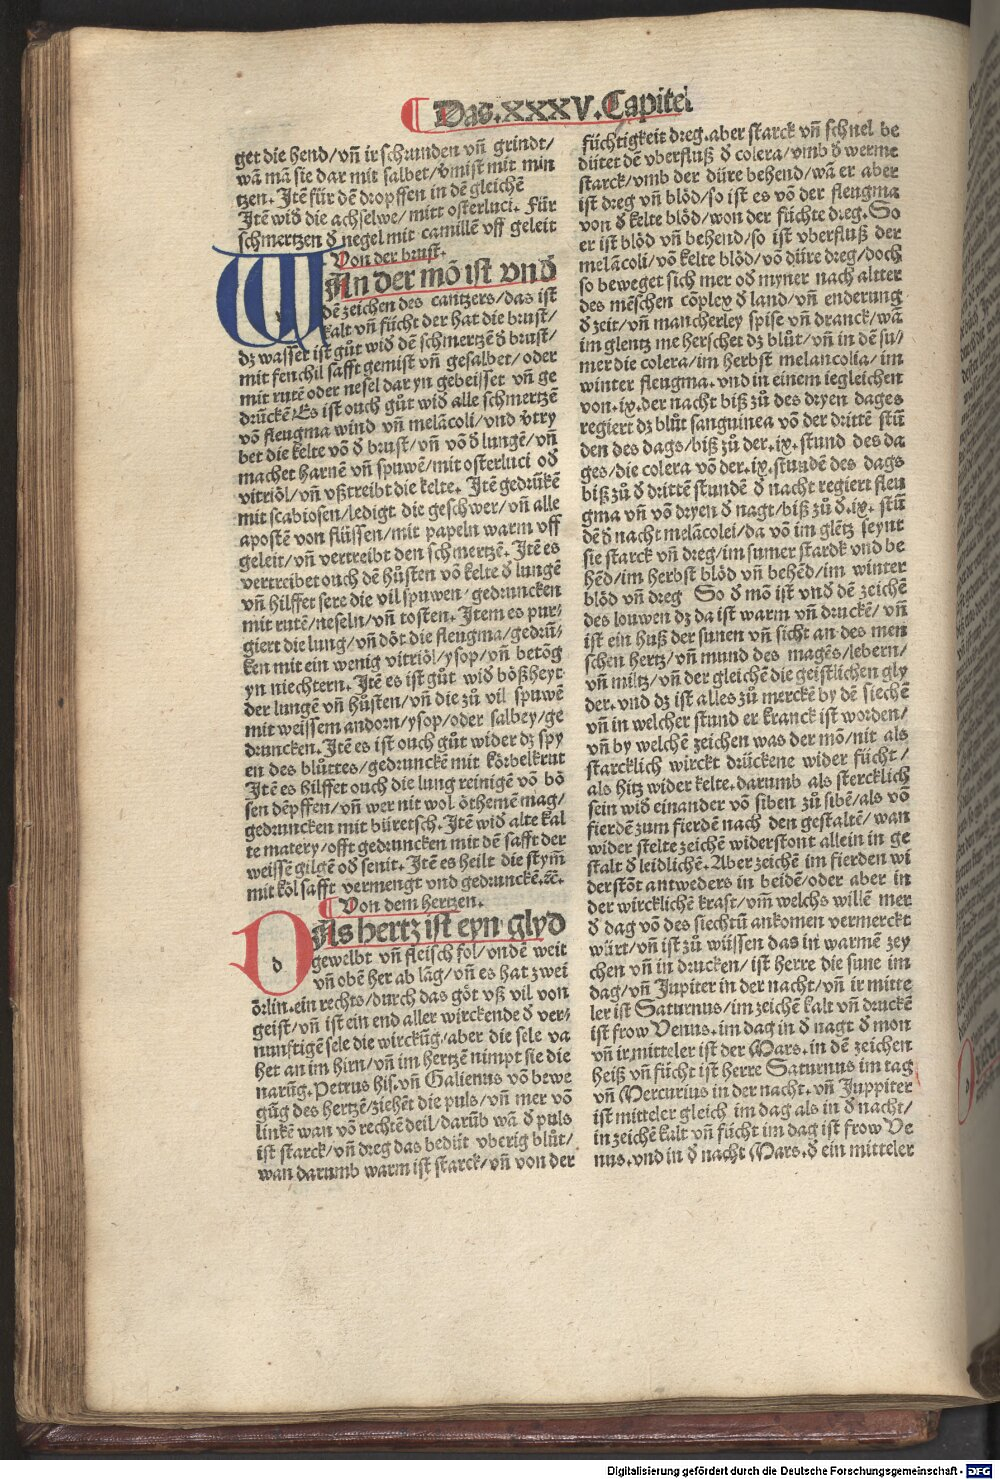 Das.XXXV.Capitel
get die hend/vn̄ ir schrunden vn̄ grindt/
wā mā sie dar mit salbet/vmist mit min
tzen. Itē für dē dropffen in dē gleichē
Itē wid̄ die achselwe/mitt osterluci. Für
schmertzen d̄ negel mit camillē vff geleit
Von der brust.
WAn der mō ist vnd̄
dē zeichen des cantzers/das ist
kalt vn̄ fücht der hat die brust/
dz wasser ist gůt wid̄ dē schmertzē d̄ brust/
mit fenchil safft gemist vn̄ gesalbet/oder
mit rutē oder nesel dar yn gebeisset vn̄ ge
drūckē Es ist ouch gůt wid̄ alle schmertzē
vō fleugma wind vn̄ melācoli/vnd vtry
bet die kelte vō d̄ brust/vn̄ vō d̄ lungē/vn̄
machet harnē vn̄ spuwē/mit osterluci od̄
vitriöl/vn̄ vßtreibt die kelte. Itē gedrūkē
mit scabiosen/ledigt die geschwer/vn̄ alle
apostē von flüssen/mit papeln warm vff
geleit/vn̄ vertreibt den schmertzē. Itē es
vertreibet ouch dē hůsten vō kelte d̄ lungē
vn̄ hilffet sere die vil spuwen/gedruncken
mit rutē/neseln/vn̄ tosten. Item es pur/
giert die lung/vn̄ döt die fleugma/gedrū/
ken mit ein wenig vitriöl/ysop/vn̄ betōg
yn niechtern. Itē es ist gůt wid̄ bößheyt
der lungē vn̄ hůsten/vn̄ die zů vil spuwē
mit weissem andorn/ysop/oder salbey/ge
druncken. Itē es ist ouch gůt wider dz spy
en des blůttes/gedrunckē mit körbelkrut
Itē es hilffet ouch die lung reinigē vō bö
sen dēpffen/vn̄ wer nit wol ōthemē mag/
gedruncken mit büretsch. Itē wid̄ alte kal
te matery/offt gedruncken mit dē safft der
weissē gilgē od̄ senit. Itē es heilt die stym̄
mit köl safft vermengt vnd gedrunckē.ꝛc̄.
Von dem hertzen.
DAs hertz ist eyn glyd
d gewelbt vn̄ fleisch fol/vndē weit
vn̄ obē her ab lāg/vn̄ es hat zwei
örlin.ein rechts/durch das göt vß vil von
geist/vn̄ ist ein end aller wirckende d̄ ver/
nunftigē sele die wirckūg/aber die sele va
het an im hirn/vn̄ im hertzē nimpt sie die
narūg. Petrus his.vn̄ Galienus vō bewe
gūg des hertzē/ziehēt die puls/vn̄ mer vō
linkē wan vō rechtē deil/darūb wā d̄ puls
ist starck/vn̄ dreg das bedüt vberig blůt/
wan darumb warm ist starck/vn̄ von der
füchtigkeit dreg.aber starck vn̄ schnel be
dütet dē vberfluß d̄ colera/vmb d̄ werme
starck/vmb der düre behend/wā er aber
ist dreg vn̄ blöd/so ist es vō der fleugma
von d̄ kelte blöd/won der füchte dreg. So
er ist blöd vn̄ behend/so ist vberfluß der
melācoli/vō kelte blöd/vō düre dreg/doch
so beweget sich mer od̄ myner nach altter
des mēschen cōplex d̄ land/vn̄ enderung
d̄ zeit/vn̄ mancherley spise vn̄ dranck/wā
im glentz me herschet dz blůt/vn̄ in dē su/
mer die colera/im herbst melancolia/im
winter fleugma.vnd in einem iegleichen
von.ix.der nacht biß zů des dryen dages
regiert dz blůt sanguinea vō der drittē stū
den des dags/biß zů der.ix.stund des da
ges/die colera vō der.ix.stundē des dags
biß zů d̄ drittē stundē d̄ nacht regiert fleu
gma vn̄ vō dryen d̄ nagt/biß zů d̄.ix. stū
dē d̄ nacht melācolei/da vō im glētz seynt
sie starck vn̄ dreg/im sumer stardk vnd be
hēd/im herbst blöd vn̄ behēd/im winter
blöd vn̄ dreg So d̄ mō ist vnd̄ dē zeichē
des louwen dz da ist warm vn̄ druckē/vn̄
ist ein huß der sunen vn̄ sicht an des men
schen hertz/vn̄ mund des magēs/lebern/
vn̄ miltz/vn̄ der gleichē die geistlichen gly
der.vnd dz ist alles zů merckē by dē siechē
vn̄ in welcher stund er kranck ist worden/
vn̄ by welchē zeichen was der mō/nit als
starcklich wirckt drückene wider fücht/
als hitz wider kelte.darumb als stercklich
sein wid̄ einander vō siben zů sibē/als vō
fierdē zum fierdē nach den gestaltē/wan
wider stelte zeichē widerstont allein in ge
stalt d̄ leidlichē. Aber zeichē im fierden wi
derstōt antweders in beidē/oder aber in
der wircklichē krast/vm̄ welchs willē mer
d̄ dag vō des siechtū ankomen vermerckt
würt/vn̄ ist zů wüssen das in warmē zey
chen vn̄ in drucken/ist herre die sune im
dag/vn̄ Jupiter in der nacht/vn̄ ir mitte
ler ist Saturnus/im zeichē kalt vn̄ druckē
ist frow Venus.im dag in d̄ nagt d̄ mon
vn̄ ir mitteler ist der Mars.in dē zeichen
heiß vn̄ fücht ist herre Saturnus im tag
vn̄ Mercurius in der nacht.vn̄ Juppiter
ist mitteler gleich im dag als in d̄ nacht/
in zeichē kalt vn̄ fücht im dag ist frow Ve
nus.vnd in d̄ nacht Mars.d̄ ein mitteler
Digitalisierung gefördert durch die Deutsche Forschungsgemeinschaft - DFG